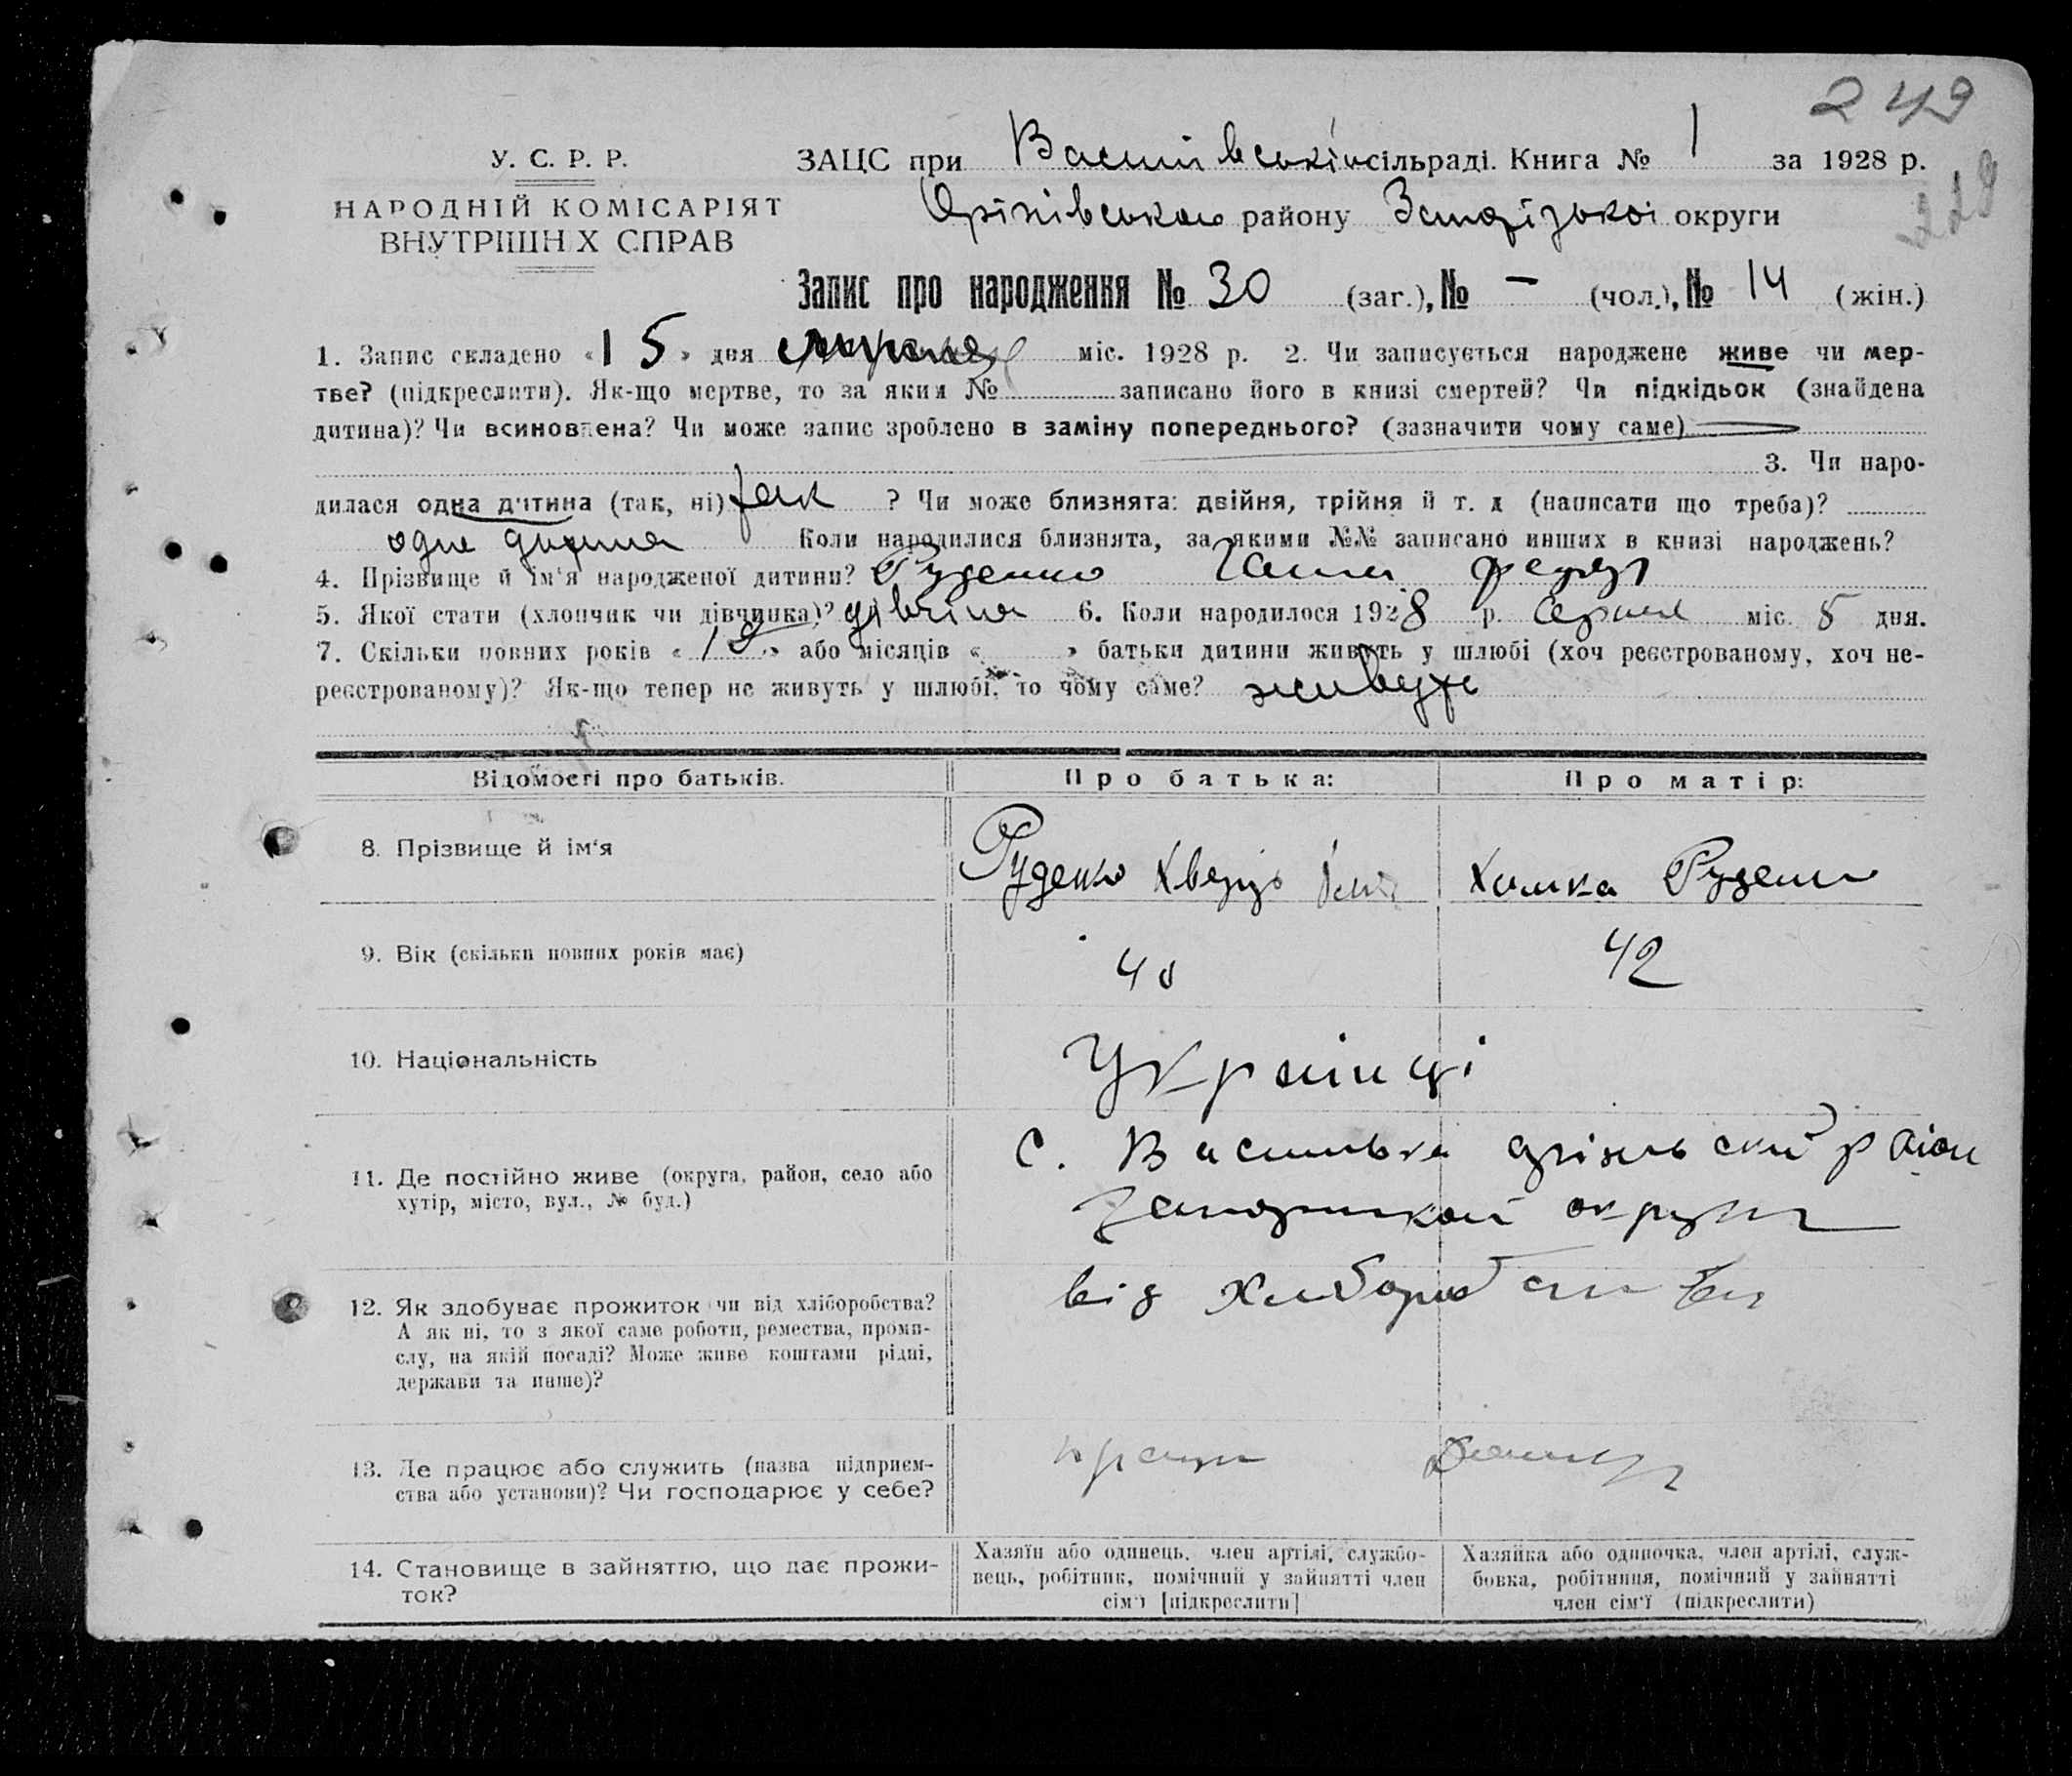 249
228
У. С. Р. Р.
НАРОДНІЙ КОМІСАРІЯТ
ВНУТРІШНІХ СПРАВ
ЗАЦС при Василівській сільраді. Книга № 1 за 1928 р.
Оріхівського району Запорізької округи
Запис про народження № 30 (заг.), № — (чол.), № 14 (жін.)
1. Запис складено «15» дня серпня міс. 1928 р. 2. Чи записується народжене живе чи мер-
тве? (підкреслити). Як-що мертве, то за яким № записано його в книзі смертей? Чи підкідьок (знайдена
дитина)? Чи всиновлена? Чи може запис зроблено в заміну попереднього? (зазначити чому саме)
3. Чи наро-
дилася одна дитина (так, ні) так ? Чи може близнята: двійня, трійня й т. д (написати що треба)?
одне дитина Коли народилися близнята, за якими №№ записано инших в книзі народжень?
4. Прізвище й ім'я народженої дитини? Руденко Ганна
5. Якої стати (хлопчик чи дівчинка)? дівчина 6. Коли народилося 1928 р. серпня міс. 5 дня.
7. Скільки повних років « » або місяців « » батьки дитини живуть у шлюбі (хоч реєстрованому, хоч не-
реєстрованому)? Як-що тепер не живуть у шлюбі, то чому саме? живуть
Відомости про батьків.
Про батька:
Про матір:
8. Прізвище й ім'я
Руденко Хведір
Химка Руденко
9. Вік (скільки повних років має)
40
42
10. Національність
Українці
11. Де постійно живе (округа, район, село або
хутір, місто, вул., № буд.)
с. Василівка район
округи
12. Як здобуває прожиток чи від хліборобства?
А як ні, то з якої саме роботи, ремества, проми-
слу, на якій посаді? Може живе коштами рідні,
держави та инше)?
від хліборобства
13. Де працює або служить (назва підприєм-
ства або установи)? Чи господарює у себе?
працює
14. Становище в зайняттю, що дає прожи-
ток?
Хазяїн або одинець, член артілі, службо-
вець, робітник, помічний у зайнятті член
сім'ї [підкреслити]
Хазяйка або одиночка, член артілі, служ-
бовка, робітниця, помічний у зайнятті
член сім'ї (підкреслити)